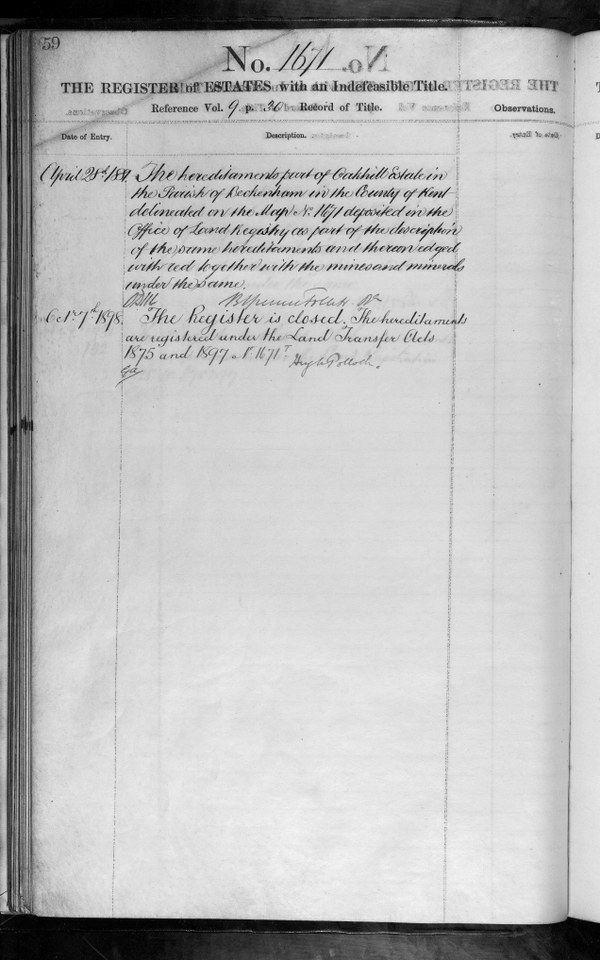 59
No. 1671
THE REGISTER of ESTATES with an Indefeasible Title.
Reference Vol. 9 p. 30 Record of Title.
Observations.
Date of Entry.
Description.
April 21st The hereditaments part of Oakhill Estate in
the Parish of Beckenham in the County of Kent
delineated on the Map No. 1671 deposited in the
Office of Land Registry as part of the description
of the same hereditaments and thereon edged
with red together with the mines and minerals
under the same.
Oct. 7th 1898. The Register is closed. The hereditaments
are registered under the Land Transfer Acts
1875 and 1897 No 1671T
Hugh Pollock.